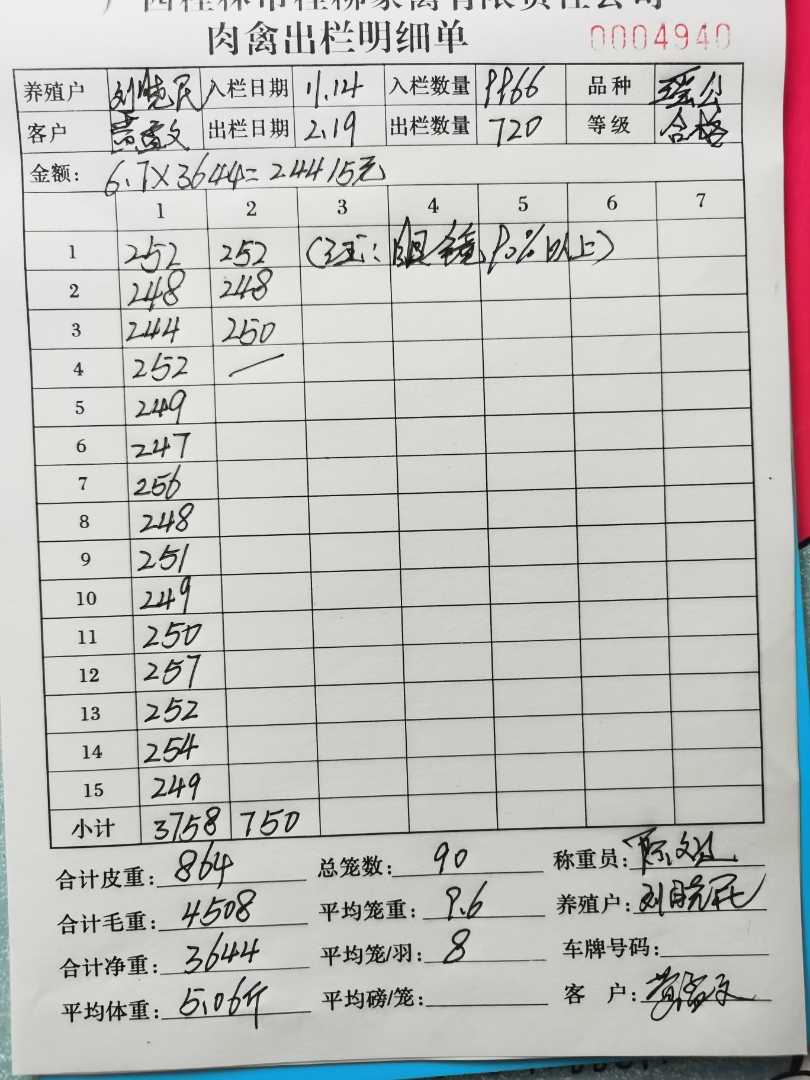 广西桂林市桂柳家禽有限责任公司
肉禽出栏明细单 0004940
养殖户 刘晓民 入栏日期 11.14 入栏数量 9966 品种 瑶公
客户 出栏日期 2.19 出栏数量 720 等级 合格
金额: 6.7×3644=24415元
1 2 3 4 5 6 7
1 252 252 (注: 眼镜 90%以上)
2 248 248
3 244 250
4 252 —
5 249
6 247
7 256
8 248
9 251
10 249
11 250
12 257
13 252
14 254
15 249
小计 3758 750
合计皮重: 864 总笼数: 90 称重员:
合计毛重: 4508 平均笼重: 9.6 养殖户: 刘晓民
合计净重: 3644 平均笼/羽: 8 车牌号码:
平均体重: 5.06斤 平均磅/笼: 客 户: